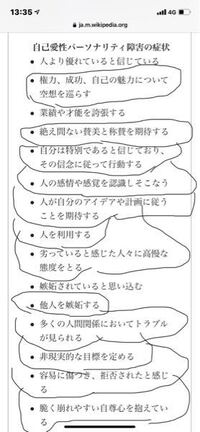 13:35
4G
ja.m.wikipedia.org
自己愛性パーソナリティ障害の症状
• 人より優れていると信じている
• 権力、成功、自己の魅力について
空想を巡らす
• 業績や才能を誇張する
• 絶え間ない賛美と称賛を期待する
• 自分は特別であると信じており、
その信念に従って行動する
• 人の感情や感覚を認識しそこなう
• 人が自分のアイデアや計画に従う
ことを期待する
• 人を利用する
• 劣っていると感じた人々に高慢な
態度をとる
• 嫉妬されていると思い込む
• 他人を嫉妬する
• 多くの人間関係においてトラブル
が見られる
• 非現実的な目標を定める
• 容易に傷つき、拒否されたと感じ
る
• 脆く崩れやすい自尊心を抱えてい
る